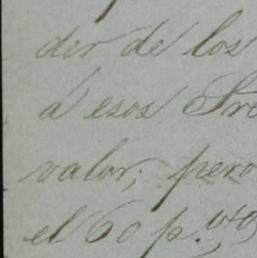 der de los
á esos Sre
valor; pero
el 60 p.%